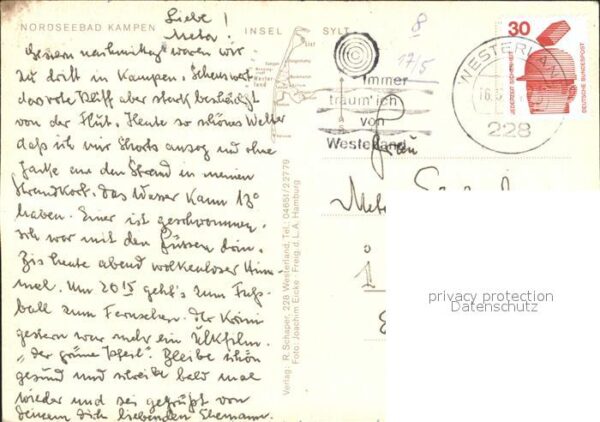 NORDSEEBAD KAMPEN
INSEL SYLT
Liebe
Meta!
Gestern nachmittag waren wir
zu dritt in Kampen. Sehenswert
das rote Kliff aber stark beschädigt
von der Flut. Heute so schönes Wetter
daß ich mir Shorts anzog und ohne
Jacke an den Strand in meinen
Strandkorb. Das Wasser kann 13°
haben. Einer ist geschwommen,
ich war mit den Füssen drin.
Bis heute abend wolkenloser Him-
mel. Um 20 15 geht's zum Fuß-
ball zum Fernsehen. Der Krimi
gestern war mehr ein Ulkfilm.
"der grüne
Bleibe schön
gesund und schreibe bald mal
wieder und sei gegrüßt von
deinem dich liebenden Ehemann.
List
Westerland
8
17/5
Immer
träum' ich
von
Westerland
WESTERLAND
16.
228
30
JEDERZEIT SICHERHEIT
DEUTSCHE BUNDESPOST
Frau
Meta
privacy protection
Datenschutz
Verlag: R. Schaper, 228 Westerland, Tel. 04651/22779
Foto: Joachim Eicke · Freig. d. L.A. Hamburg